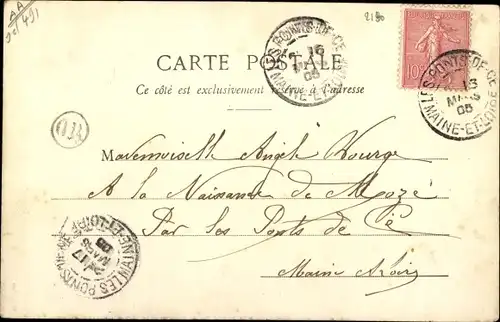 AA
2180
CARTE POSTALE
Ce côté est exclusivement réservé à l'adresse
LES PONTS-DE-CÉ
16
05
MAINE-ET-LOIRE
10c
LES PONTS-DE-CÉ
16
MARS
05
MAINE-ET-LOIRE
OR
Mademoiselle Angèle
A la Naissance de Mozé
Par les Ponts de Cé
Maine & Loire
LES PONTS
17
MARS
05